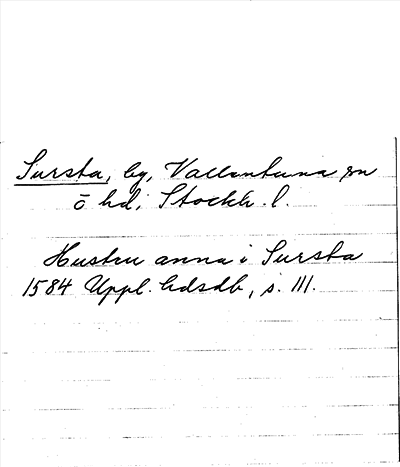 Sursta, by, Vallentuna sn
o hd, Stockh. l.
Hustru anna i Sursta
1584 Uppl. hdsdb, s. 111.